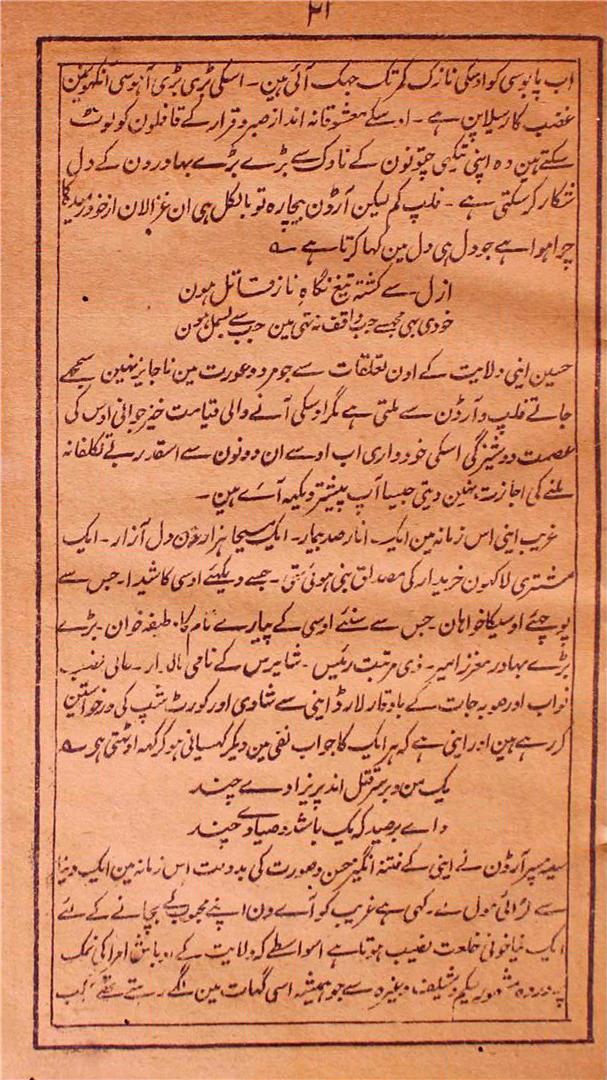 ۲۱
اب پابوسی کو اوسکی نازک کمر تک جہک آئی ہین۔ اسکی بڑی بڑی آہوسی آنکھونمین
غضب کا رسیلاپن ہے۔ اوسکے معشوقانہ انداز صبر و قرار کے قافلون کو لوٹ
سکتے ہین وہ اپنی تیکہی چتونون کے ناوک سے بڑے بڑے بہادرون کے دل
شکار کر سکتی ہے۔ فلپ کم لیکن آرڈن بیچارہ تو بالکل ہی ان غزالان از خود رمیدہ کا
چرا ہوا ہے جو دل ہی دل مین کہا کرتا ہے ؎
ازل سے کشتہ تیغ نگاہ ناز قاتل ہون
خودی بہی مجہسے جب واقف نہ تہی مین جب سے بسمل ہون
حسین اینی ولایت کے اون تعلقات سے جو مرد و عورت مین ناجایز نہین سمجھے
جاتے فلپ و آرڈن سے ملتی ہے مگر اوسکی آنے والی قیامت خیز جوانی اوس کی
عصمت دوشیزگی اسکی خودداری اب اوسے ان دونون سے اسقدر بے تکلفانہ
ملنے کی اجازت نہین دیتی جیسا آپ پیشتر دیکہہ آے ہین۔
غریب اینی اس زمانہ مین ایک انار صد بیمار۔ ایک مسیحا ہزارون دل آزار۔ ایک
مشتری لاکہون خریدار کی مصداق بنی ہوئی تہی۔ جسے دیکہئے اوسی کا شیدا۔ جس سے
پوچہئے اوسیکا خواہان۔ جس سے سنئے اوسی کے پیارے نام کا وظیفہ خوان۔ بڑے
بڑے بہادر معزز امیر۔ ذی مرتبت رئیس۔ شایرس کے نامی مالدار۔ عالی نصیب
نواب اور صوبہ جات کے باوقار لارڈ اینی سے شادی اور کورٹ شپ کی درخواستین
کر رہے ہین اور اینی ہے کہ ہر ایک کا جواب نفی مین دیکر کہسیانی ہو کر کہہ اوٹہتی ہے ؎
یک من و بر سر قتل اند پریزادے چند
واے بر صید کہ یک باشد و صیادے چند
آرڈن نے اینی کے فتنہ انگیز حسن و صورت کی بدولت اس زمانہ مین ایک دنیا
سے لڑائی مول لے رکہی ہے غریب کو آے دن اپنے محبوب کے بچانے کے لئے
ایک نیا خونی خلعت نصیب ہوتا ہے اسواسطے کہ ولایت کے اوباش امرا کی نمک
پروردہ مشہور وغیرہ سے جو ہمیشہ اسی گہات مین لگے رہتے تہے کہ اب